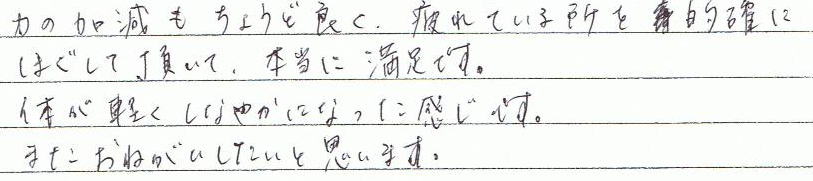 力の加減もちょうど良く、疲れている所を的確に
ほぐして頂いて、本当に満足です。
体が軽くしなやかになった感じです。
またおねがいしたいと思います。